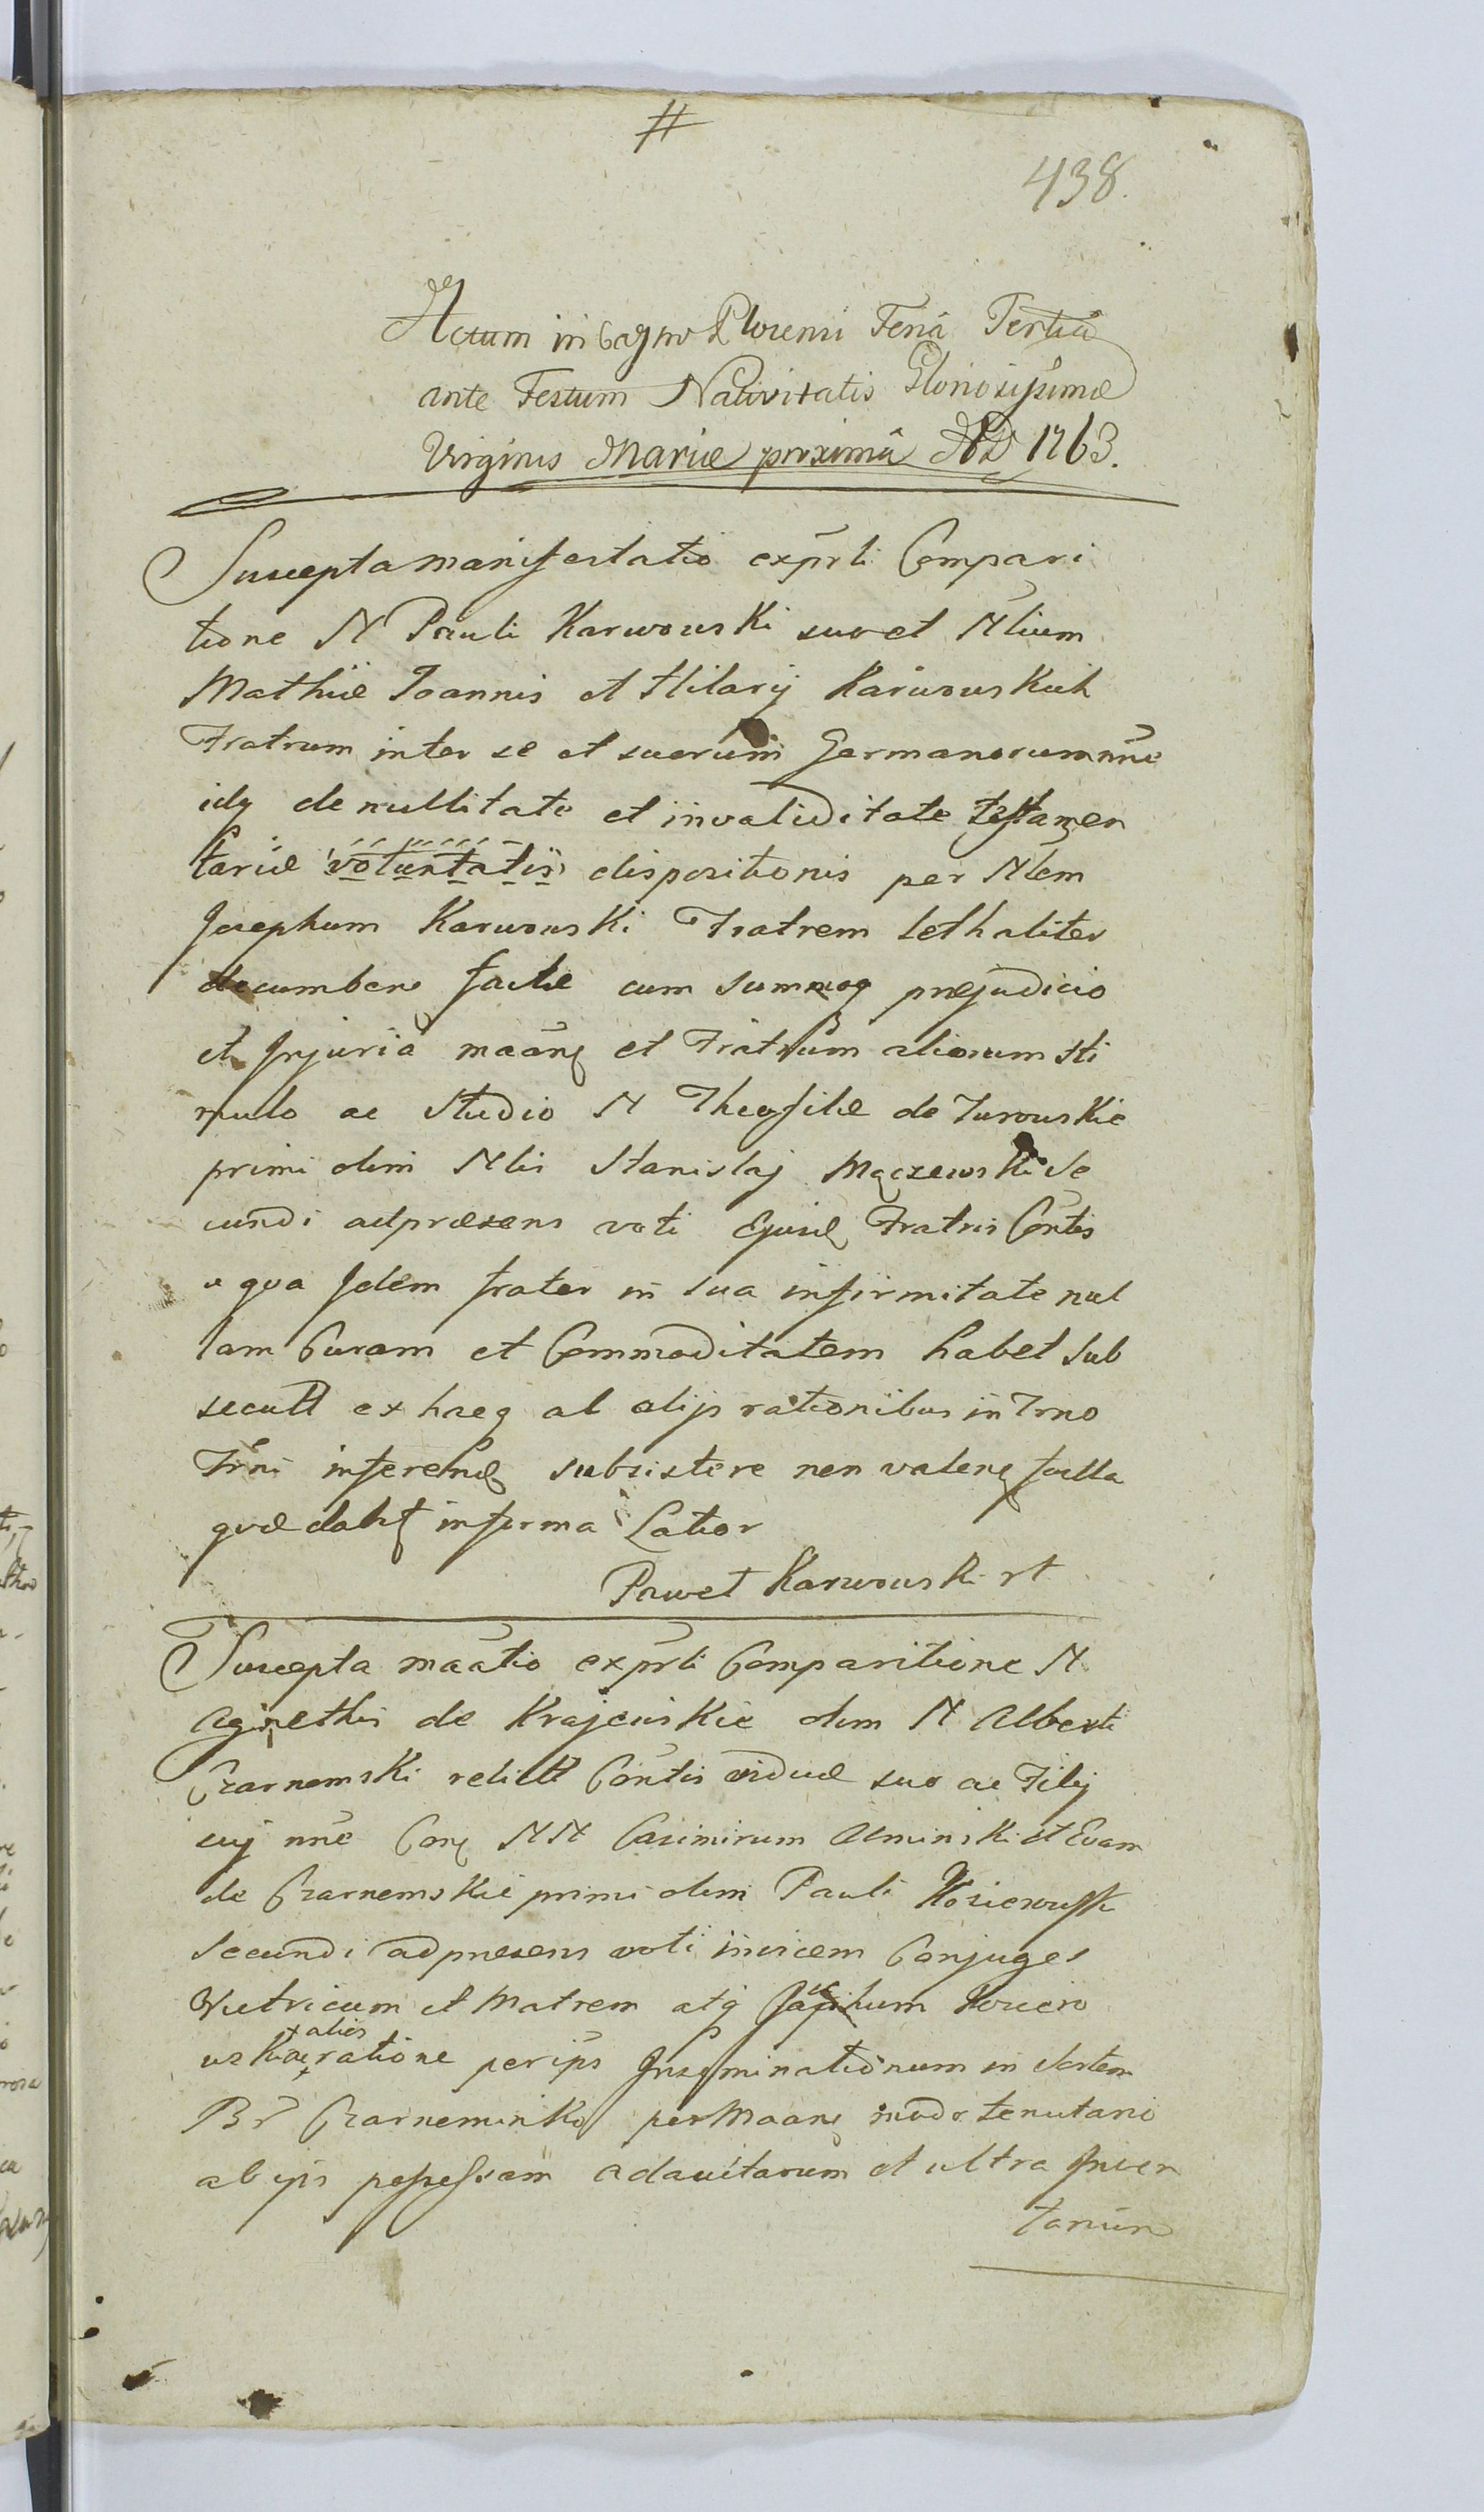 #
438.
Actum in Castro Plocensi Feriâ Tertiâ
ante Festum Nativitatis Gloriosissimæ
Virginis Mariæ proximâ AD 1763.
Suscepta manifestatio exprti Compari
tione N Pauli Karwowski suo et Nlium
Mathiæ Joannis et Hilarij Karwowskich
Fratrum inter se et suorum Germanorum nne
idq de nullitate et invaliditate testamen
tariæ voluntatis dispositionis per Nlem
Josephum Karwowski Fratrem lethaliter
decumben factæ cum summoq præjudicio
et Injuriâ maanę et Fratrum aliorum sti
mulo ac studio N Theofilæ de Jurowskie
primi olim Nlis Stanislaj Mączewski Se
cundi ad præsens voti Ejusd Fratris Contis
a qva Idem frater in sua infirmitate nul
lam Curam et Commoditatem habet sub
secutt ex hacq al alijs rationibus in Trno
Trni inferend subsistere non valenę facta
qvæ dabt in forma Latior
Paweł Karwowski rt
Suscepta maatio exprti Comparitione N
Agnethis de Krajewskie olim N Alberti
Czarnomski relict Contis viduæ suo ac Filij
suj nne Conę NN Casimirum Olminski et Evam
de Czarnomskie primi olim Pauli
secundi ad præsens voti invicem Conjuges
Vitricum et Matrem atq
alios
ratione per ips Inseminationum in Sortem
Br per Maanę modo tenutario
ab ips possessam adauctarum et ultra Inven
tarium